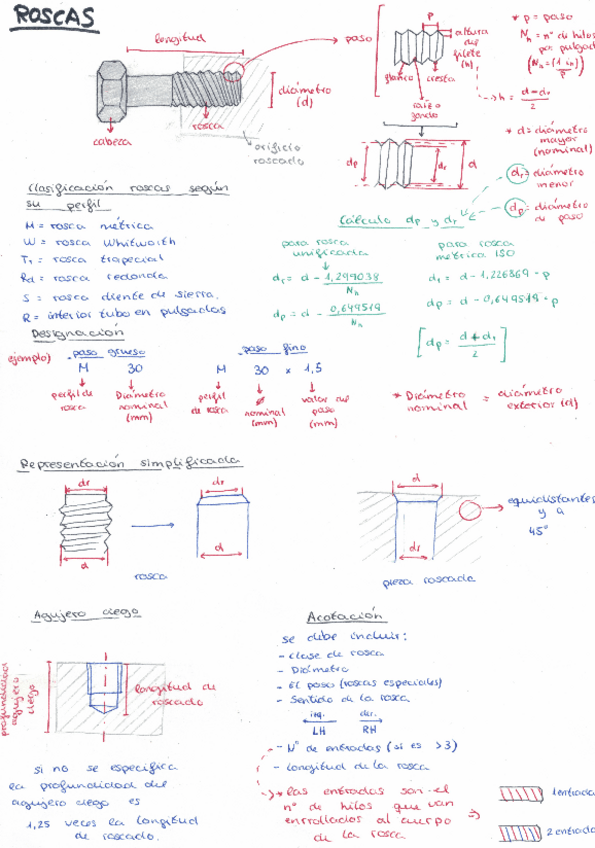 ROSCAS
longitud
cabeza
rosca
diámetro
(d)
orificio
roscado
paso
P
altura
del
filete
(h)
flanco
cresta
raíz o
fondo
--> h = d - dr / 2
dp
dr
d
* p = paso
Nh = nº de hilos
por pulgada
(Nh = (1 in) / P)
* d = diámetro
mayor
(nominal)
dr = diámetro
menor
dp = diámetro
de paso
Clasificación roscas según
su perfil
M = rosca métrica
W = rosca Whitworth
Tr = rosca trapecial
Rd = rosca redonda
S = rosca diente de sierra.
R = interior tubo en pulgadas
Cálculo dp y dr
para rosca
unificada
dr = d - 1,299038 / Nh
dp = d - 0,649519 / Nh
para rosca
métrica ISO
dr = d - 1,226869 · p
dp = d - 0,649519 · p
[dp = d + dr / 2]
Designación
ejemplo)
. paso grueso
M 30
perfil de
rosca
Diámetro
nominal
(mm)
. paso fino
M 30 x 1,5
perfil
de rosca
ø
nominal
(mm)
valor del
paso
(mm)
* Diámetro
nominal = diámetro
exterior (d)
Representación simplificada
dr
d
rosca
dr
d
d
dr
pieza roscada
equidistantes
y a
45°
Agujero ciego
profundidad
agujero
ciego
longitud de
roscado
si no se especifica
la profundidad del
agujero ciego es
1,25 veces la longitud
de roscado.
Acotación
se debe incluir:
- clase de rosca
- Diámetro
- El paso (roscas especiales)
- Sentido de la rosca
izq. der.
LH RH
- Nº de entradas (si es >3)
- longitud de la rosca
* las entradas son el
nº de hilos que van
enrollados al cuerpo
de la rosca
1 entrada
2 entrada